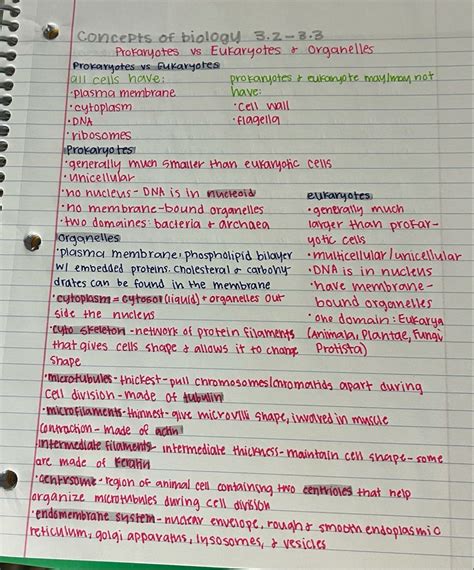 Concepts of biology 3.2-3.3
Prokaryotes vs Eukaryotes & Organelles
Prokaryotes vs Eukaryotes
all cells have:
• plasma membrane
• cytoplasm
• DNA
• ribosomes
prokaryotes & eukaryote may/may not
have:
• cell wall
• flagella
Prokaryotes
• generally much smaller than eukaryotic cells
• unicellular
• no nucleus - DNA is in nucleoid
• no membrane-bound organelles
• two domaines: bacteria & archaea
eukaryotes
• generally much
larger than prokar-
yotic cells
• multicellular/unicellular
• DNA is in nucleus
• have membrane-
bound organelles
• one domain: Eukarya
(Animalia, Plantae, Fungi,
Protista)
Organelles
• plasma membrane: phospholipid bilayer
w/ embedded proteins. Cholesteral & carbohy-
drates can be found in the membrane
• cytoplasm = cytosol (liquid) + organelles out
side the nucleus
• cyto skeleton - network of protein filaments
that gives cells shape & allows it to change
shape
• microtubules - thickest - pull chromosomes/chromatids apart during
cell division - made of tubulin
• microfilaments - thinnest - give microvilli shape, involved in muscle
contraction - made of actin
intermediate filaments - intermediate thickness - maintain cell shape - some
are made of keratin
• centrsome - region of animal cell containing two centrioles that help
organize microtubules during cell division
• endomembrane system - nuclear envelope, rough & smooth endoplasmic
reticulum, golgi apparatus, lysosomes, & vesicles